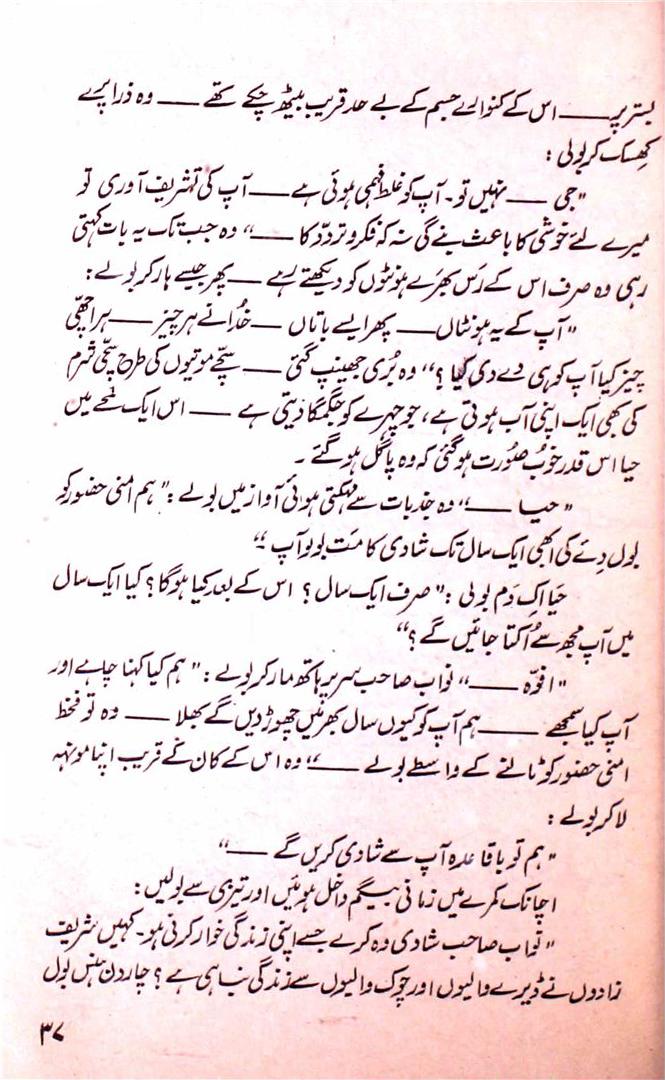 بستر پر —— اس کے کنوارے جسم کے بے حد قریب بیٹھ چکے تھے —— وہ ذرا پرے
کھسک کر بولی :
"جی —— نہیں تو۔ آپ کو غلط فہمی ہوئی ہے —— آپ کی تشریف آوری تو
میرے لئے خوشی کا باعث بنے گی نہ کہ فکر و تردّد کا ——" وہ جب تک یہ بات کہتی
رہی وہ صرف اس کے رَس بھرے ہونٹوں کو دیکھتے رہے —— پھر جیسے ہار کر بولے :
"آپ کے یہ ہونٹاں —— پھر ایسے باتاں —— خُدا نے ہر چیز —— ہر اچھّی
چیز کیا آپ کو ہی دے دی گیا ؟" وہ بُری جھینپ گئی —— سچّے موتیوں کی طرح سچّی شرم
کی بھی ایک اپنی آب ہوتی ہے، جو چہرے کو جگمگا دیتی ہے —— اس ایک لمحے میں
حیا اس قدر خوبُ صورت ہو گئی کہ وہ پاگل ہو گئے ۔
"حیا ——" وہ جذبات سے بہکتی ہوئی آواز میں بولے : "ہم امنی حضور کو
بول دِئے کی ابھی ایک سال تک شادی کا مَت بولو آپ ؂"
حَیا اک دَم بولی : "صرف ایک سال ؟ اس کے بعد کیا ہو گا ؟ کیا ایک سال
میں آپ مجھ سے اُکتا جائیں گے ؟"
"افوّہ ——" نواب صاحب سر پر ہاتھ مار کر بولے : "ہم کیا کہنا چاہے اور
آپ کیا سمجھے —— ہم آپ کو کیوں سال بھر میں چھوڑ دیں گے بھلا —— وہ تو فخط
امنی حضور کو ٹالنے کے واسطے بولے ——" وہ اس کے کان کے قریب اپنا مونہہ
لا کر بولے :
"ہم تو باقاعدہ آپ سے شادی کریں گے ——"
اچانک کمرے میں زمانی بیگم داخل ہوئیں اور تیزی سے بولیں :
"نواب صاحب شادی وہ کرے جسے اپنی زندگی خوار کرنی ہو۔ کہیں شریف
زادوں نے ڈیرے والیوں اور چوک والیوں سے زندگی نباہی ہے ؟ چار دن ہنس بول
۳۷